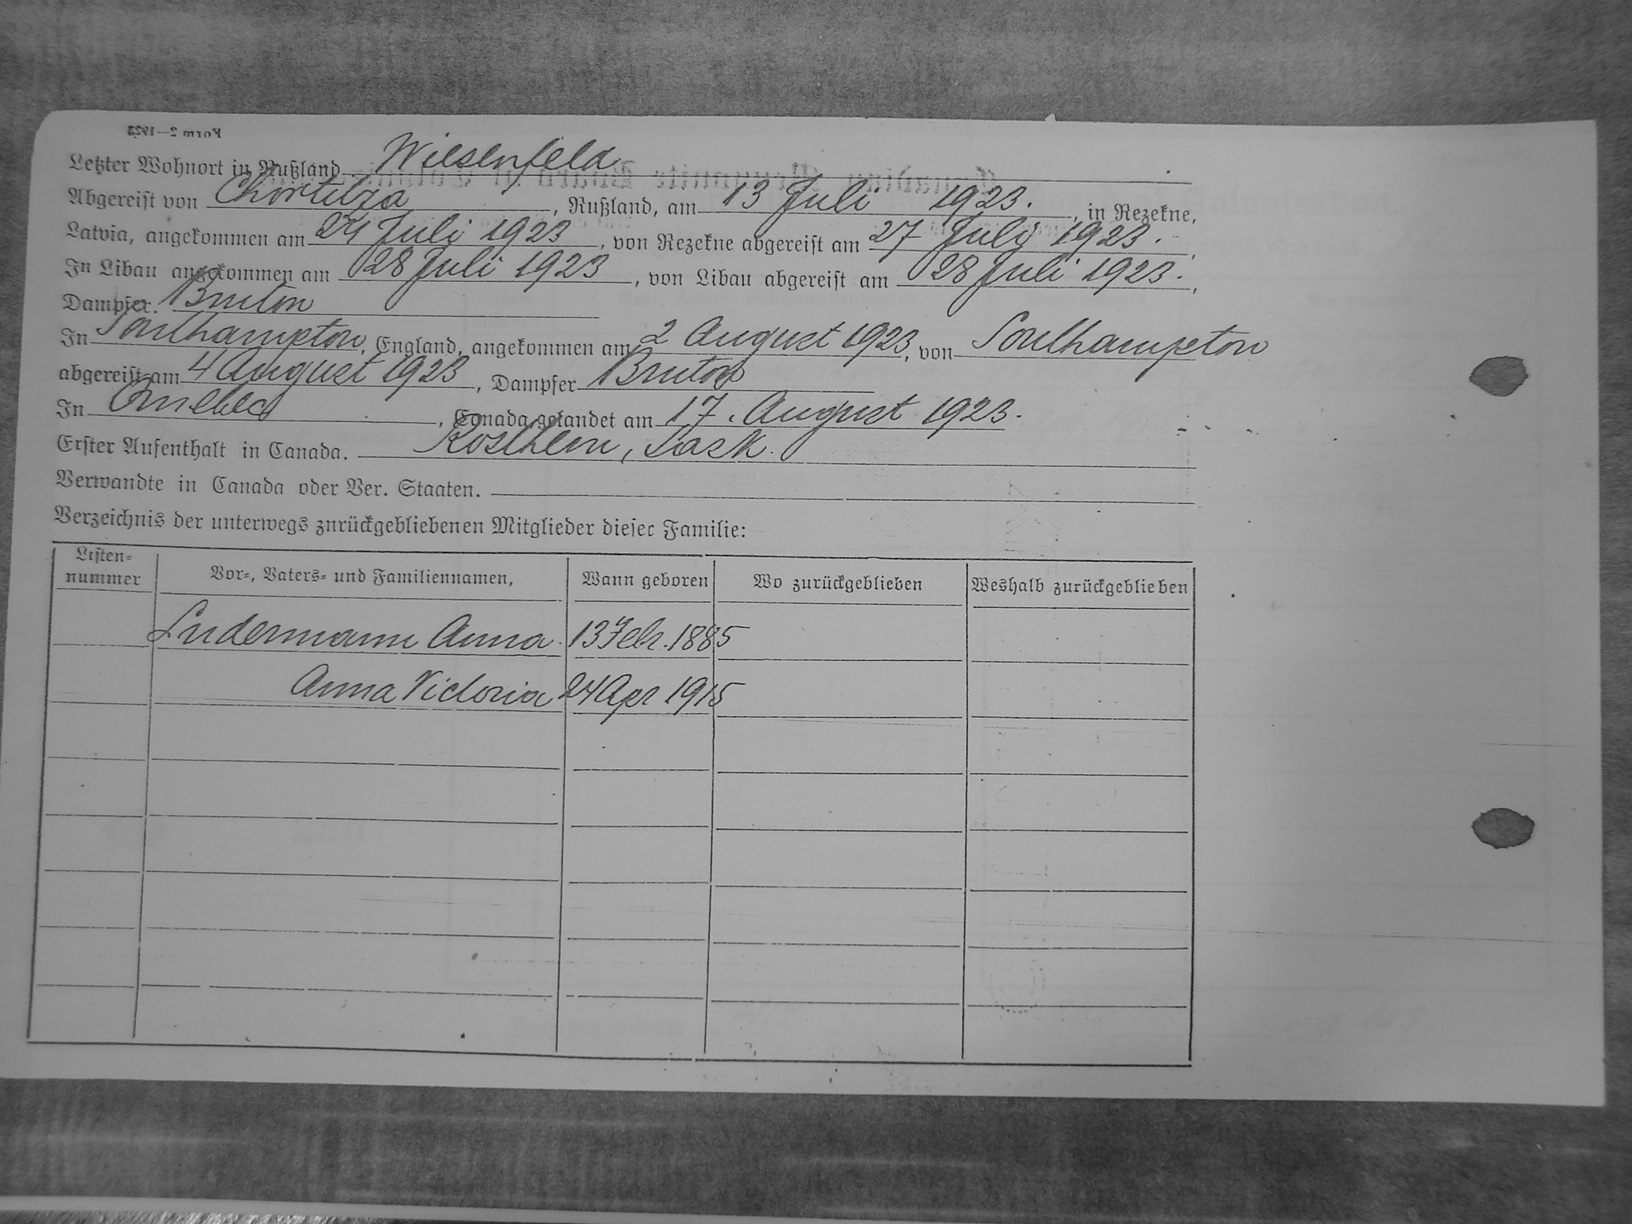 Letzter Wohnort in Rußland Wiesenfeld
Abgereist von Chortitza, Rußland, am 13 Juli 1923., in Rezekne,
Latvia, angekommen am 24 Juli 1923, von Rezekne abgereist am 27 July 1923.
In Libau angekommen am 28 Juli 1923, von Libau abgereist am 28 Juli 1923.,
Dampfer. Bruton
In Southampton, England, angekommen am 2 August 1923, von Southampton
abgereist am 4 August 1923, Dampfer Bruton
In Quebec, Canada gelandet am 17. August 1923.
Erster Aufenthalt in Canada. Rosthern, Sask.
Verwandte in Canada oder Ver. Staaten.
Verzeichnis der unterwegs zurückgebliebenen Mitglieder dieser Familie:
Listen-
nummer Vor-, Vaters- und Familiennamen, Wann geboren Wo zurückgeblieben Weshalb zurückgeblieben
Sudermann Anna 13 Febr. 1885
Anna Victoria 24 Apr 1915